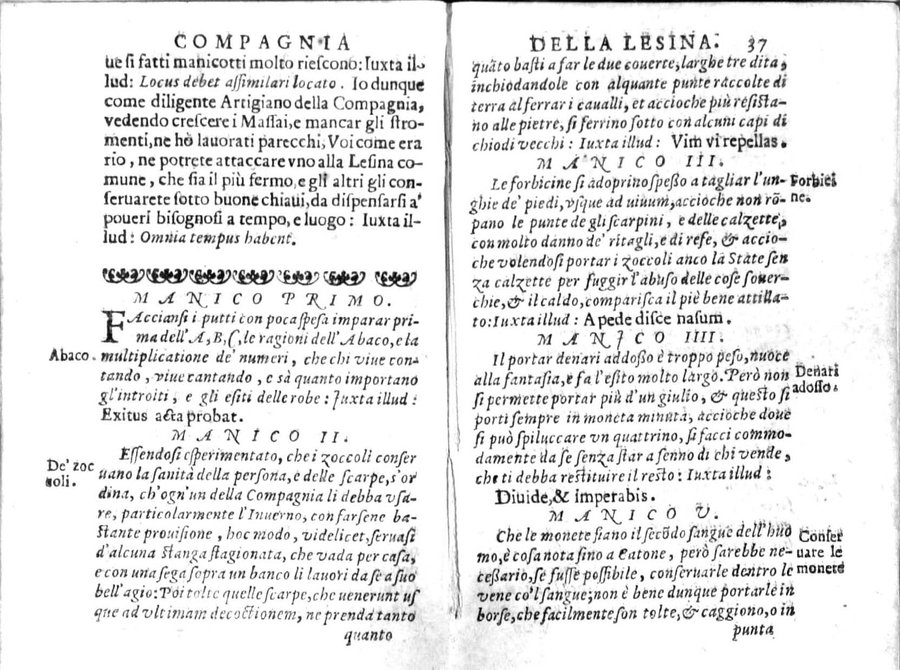 COMPAGNIA
ue si fatti manicotti molto riescono: Iuxta il-
lud: Locus debet assimilari locato. Io dunque
come diligente Artigiano della Compagnia,
vedendo crescere i Massai, e mancar gli stro-
menti, ne hò lauorati parecchi, Voi come era
rio, ne potrete attaccare vno alla Lesina co-
mune, che sia il più fermo, e gli altri gli con-
seruarete sotto buone chiaui, da dispensarsi a'
poueri bisognosi a tempo, e luogo: Iuxta il-
lud: Omnia tempus habent.
MANICO PRIMO.
FAcciansi i putti con poca spesa imparar pri-
ma dell'A, B, C, le ragioni dell'Abaco, e la
Abaco.
multiplicatione de' numeri, che chi viue con-
tando, viue cantando, e sà quanto importano
gl'introiti, e gli esiti delle robe: Iuxta illud:
Exitus acta probat.
MANICO II.
De' zoc
coli.
Essendosi esperimentato, che i zoccoli conser
uano la sanità della persona, e delle scarpe, s'or
dina, ch'ogn'un della Compagnia li debba vsa-
re, particolarmente l'Inuerno, con farsene ba-
stante prouisione, hoc modo, videlicet, seruasi
d'alcuna stanga stagionata, che vada per casa,
e con una sega sopra un banco li lauori da se a suo
bell'agio: Poi tolte quelle scarpe, che uenerunt us
que ad vltimam decoctionem, ne prenda tanto
quanto
DELLA LESINA. 37
quãto basti a far le due couerte, larghe tre dita,
inchiodandole con alquante punte raccolte di
terra al ferrar i caualli, et accioche più resista-
no alle pietre, si ferrino sotto con alcuni capi di
chiodi vecchi: Iuxta illud: Vim vi repellas.
MANICO III.
Le forbicine si adoprino spesso a tagliar l'un-
Forbici
ne.
ghie de' piedi, vsque ad uiuum, accioche non rõ-
pano le punte de gli scarpini, e delle calzette,
con molto danno de' ritagli, e di refe, & accio-
che volendosi portar i zoccoli anco la State sen
za calzette per fuggir l'abuso delle cose souer-
chie, & il caldo, comparisca il piè bene attilla-
to: Iuxta illud: A pede disce nasum.
MANICO IIII.
Il portar denari addosso è troppo peso, nuoce
Denari
adosso.
alla fantasia, e fa l'esito molto largo. Però non
si permette portar più d'un giulio, & questo si
porti sempre in moneta minuta, accioche doue
si può spiluccare vn quattrino, si facci commo-
damente da se senza star a senno di chi vende,
che ti debba restituire il resto: Iuxta illud:
Diuide, & imperabis.
MANICO V.
Che le monete siano il secõdo sangue dell'huo
Conser
uare le
monete
mo, è cosa nota sino a Catone, però sarebbe ne-
cessario, se fusse possibile, conseruarle dentro le
vene co'l sangue; non è bene dunque portarle in
borse, che facilmente son tolte, & caggiono, o in
punta